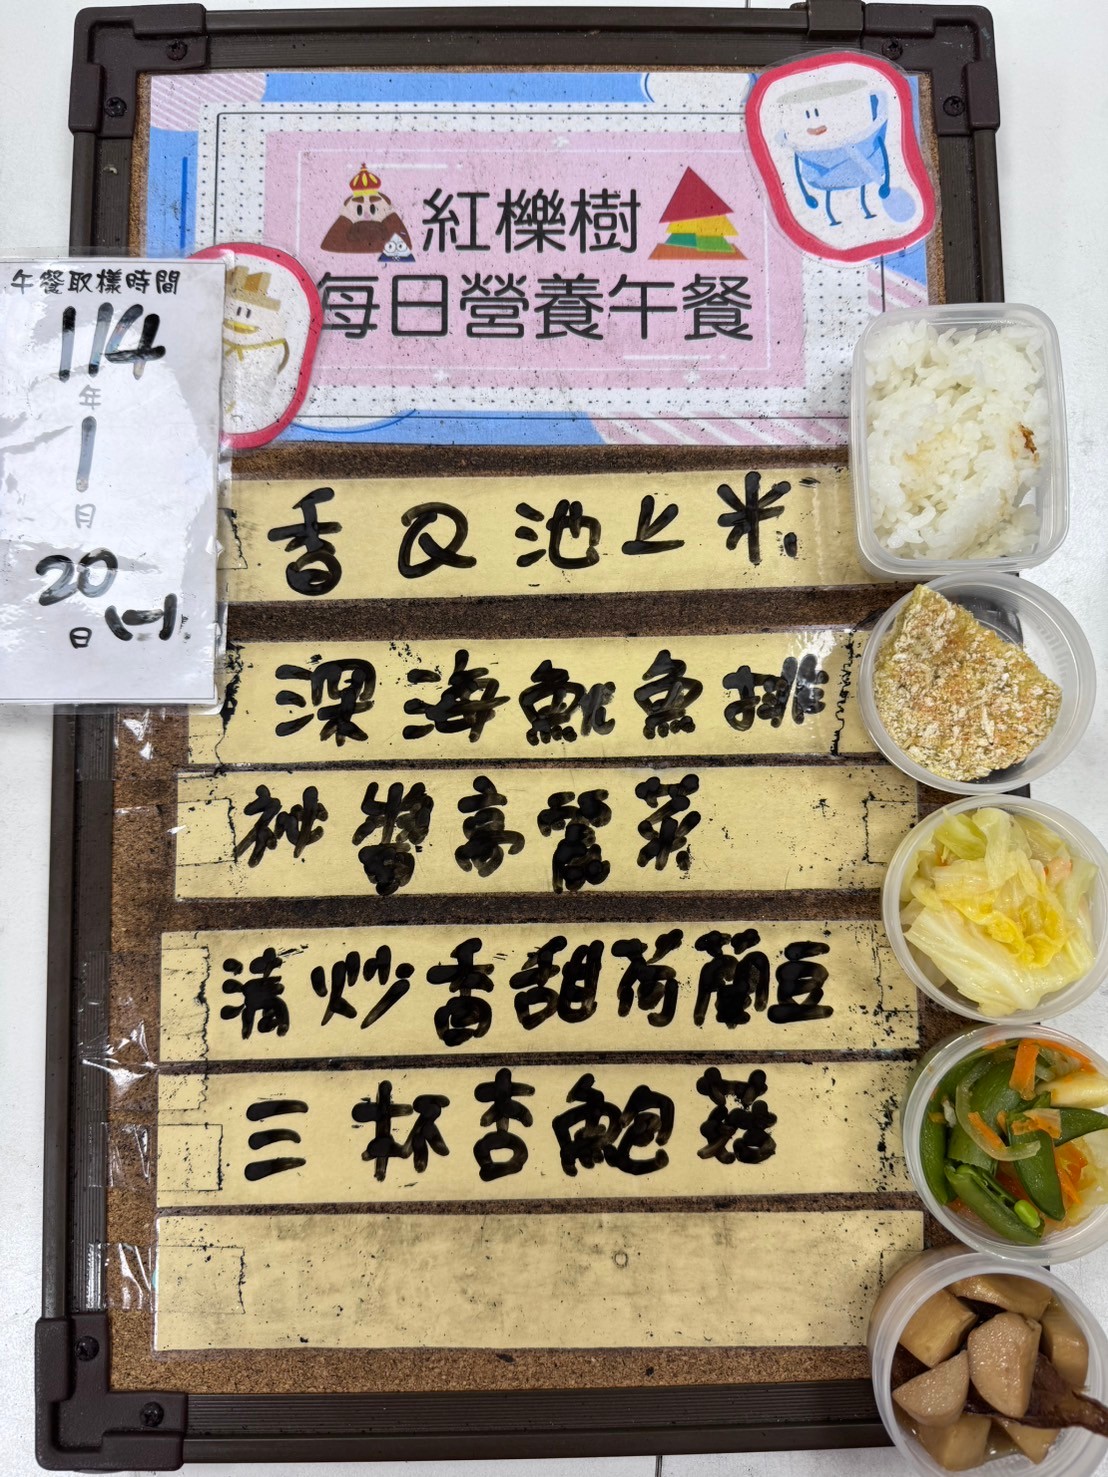 紅櫟樹
每日營養午餐
午餐取樣時間
114
年
1
月
20
日 (一)
香Q池上米
深海魷魚排
祕醬高麗菜
清炒香甜荷蘭豆
三杯杏鮑菇